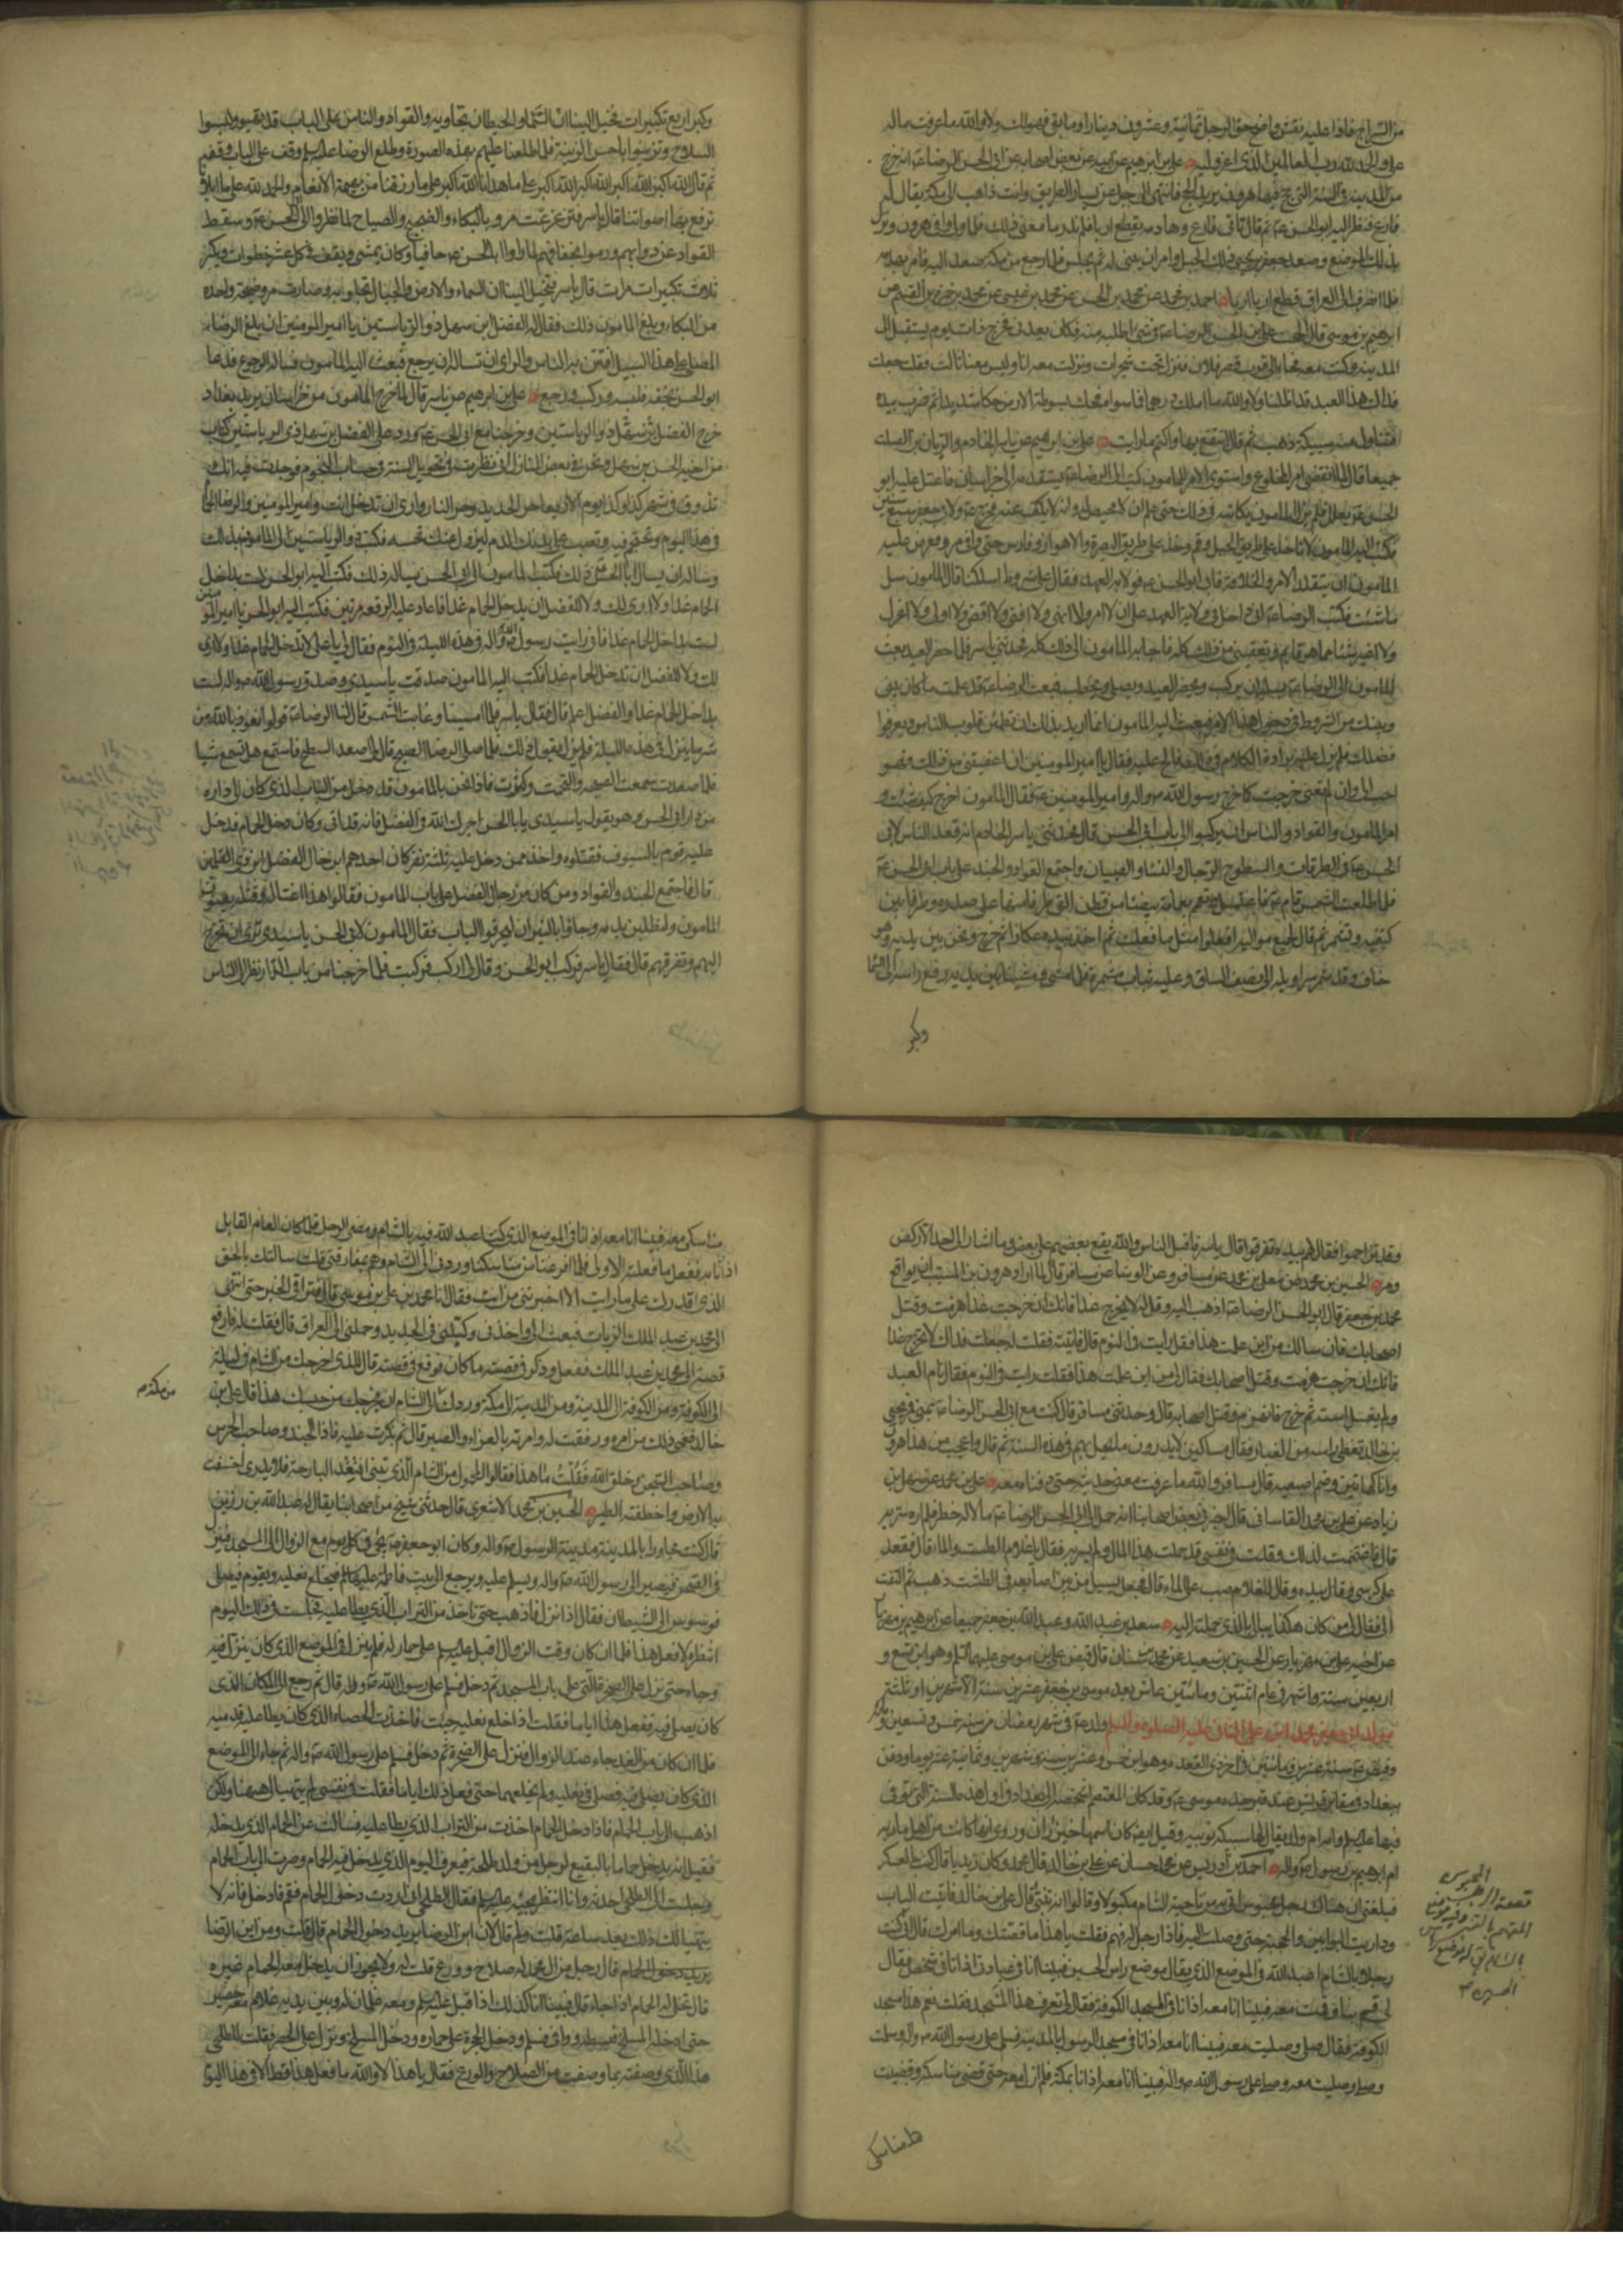 من السراج فاذا عليه نقش واضح حق الرجل ثمانية وعشرون دينارا وما بقى فهو لك ولا والله ما عرفت ماله
على والحمد لله رب العالمين الذى اعز وليه على بن ابرهيم عن ابيه عن بعض اصحابه عن ابى الحسن الرضا ع انه خرج
من المدينة فى السنة التى حج فيها هرون يريد الحج فانتهى الى جبل عن يسار الطريق وانت ذاهب الى مكة يقال له
فارع فنظر اليه ابو الحسن ع ثم قال بانى فارع وهادمه يقطع اربا اربا فلم ندر ما معنى ذلك فلما وافى هرون ونزل
بذلك الموضع وصعد جعفر بن يحيى ذلك الجبل وامر ان يبنى له ثم مجلس فلما رجع من مكة صعد اليه فامر بهدمه
فلما انصرف الى العراق قطع اربا اربا احمد بن محمد عن محمد بن الحسن عن محمد بن عيسى عن محمد بن حمزة بن القسم عن
ابرهيم بن موسى قال الححت على ابى الحسن الرضا ع فى شىء اطلبه منه فكان يعدنى فخرج ذات يوم يستقبل والى
المدينة وكنت معه فجاء الى قرب قصر فلان فنزل تحت شجرات ونزلت معه انا وليس معنا ثالث فقلت جعلت
فداك هذا العيد قد اظلنا ولا والله ما املك درهما فما سواه فحك بسوطه الارض حكا شديدا ثم ضرب بيده
فتناول منه سبيكة ذهب ثم قال انتفع بها واكتم ما رايت على بن ابرهيم عن ياسر الخادم والريان بن الصلت
جميعا قال لما انقضى امر المخلوع واستوى الامر للمامون كتب الى الرضا ع يستقدمه الى خراسان فاعتل عليه ابو
الحسن ع بعلل فلم يزل المامون يكاتبه فى ذلك حتى علم انه لا محيص له وانه لا يكف عنه فخرج ع ولابى جعفر سبع سنين
فكتب اليه المامون لا تاخذ على طريق الجبل وقم وخذ على طريق البصرة والاهواز وفارس حتى وافى مرو فعرض عليه
المامون ان يتقلد الامر والخلافة فابى ابو الحسن ع قال فولاية العهد فقال على شروط اسئلكها قال المامون سل
ما شئت فكتب الرضا ع انى داخل فى ولاية العهد على ان لا امر ولا انهى ولا افتى ولا اقضى ولا اولى ولا اعزل
ولا اغير شيئا مما هو قايم وتعفينى من ذلك كله فاجابه المامون الى ذلك كله فحدثنى ياسر فلما حضر العيد بعث
المامون الى الرضا ع يسئله ان يركب ويحضر العيد ويصلى ويخطب فبعث اليه الرضا ع قد علمت ما كان بينى
وبينك من الشروط فى دخول هذا الامر فبعث اليه المامون انما اريد بذلك ان تطمئن قلوب الناس ويعرفوا
فضلك فلم يزل ع يراده الكلام فى ذلك فالح عليه فقال يا امير المومنين ان اعفيتنى من ذلك فهو
احب الى وان لم تعفنى خرجت كما خرج رسول الله ص واله وامير المومنين ع فقال المامون اخرج كيف شئت و
امر المامون والقواد والناس ان يركبوا الى باب ابى الحسن قال فحدثنى ياسر الخادم انه قعد الناس لابى
الحسن ع فى الطرقات والسطوح الرجال والنساء والصبيان واجتمع القواد والجند على باب ابى الحسن ع
فلما طلعت الشمس قام ع فاغتسل وتعمم بعمامة بيضاء من قطن القى طرفا منها على صدره وطرفا بين
كتفيه وتشمر ثم قال لجميع مواليه افعلوا مثل ما فعلت ثم اخذ بيده عكازا ثم خرج ونحن بين يديه وهو
حاف وقد شمر سراويله الى نصف الساق وعليه ثياب مشمرة فلما مشى ومشينا بين يديه رفع راسه الى السماء
وكبر
وكبر اربع تكبيرات فخيل الينا ان السماء والحيطان تجاوبه والقواد والناس على الباب قد تهيئوا ولبسوا
السلاح وتزينوا باحسن الزينة فلما طلعنا عليهم بهذه الصورة وطلع الرضا عليه السلم وقف على الباب وقفة
ثم قال الله اكبر الله اكبر الله اكبر الله اكبر على ما هدانا الله اكبر على ما رزقنا من بهيمة الانعام والحمد لله على ما ابلانا
نرفع بها اصواتنا قال ياسر فتزعزعت مرو بالبكاء والضجيج والصياح لما نظروا الى ابى الحسن ع وسقط
القواد عن دوابهم ورموا بخفافهم لما راوا ابا الحسن ع حافيا وكان يمشى ويقف فى كل عشر خطوات ويكبر
ثلاث تكبيرات مرات قال ياسر فتخيل الينا ان السماء والارض والجبال تجاوبه وصارت مرو ضجة واحدة
من البكاء وبلغ المامون ذلك فقال له الفضل ابن سهل ذو الرياستين يا امير المومنين ان بلغ الرضا
المصلى على هذا السبيل افتتن به الناس والراى ان تساله ان يرجع فبعث اليه المامون فساله الرجوع فدعا
ابو الحسن بخفه فلبسه وركب ورجع على بن ابرهيم عن ياسر قال لما خرج المامون من خراسان يريد بغداد
خرج الفضل بن سهل ذو الرياستين وخرجنا مع ابى الحسن ع ورد على الفضل بن سهل ذى الرياستين كتاب
من اخيه الحسن بن سهل ونحن فى بعض المنازل انى نظرت فى تحويل السنة فى حساب النجوم فوجدت فيه انك
تذوق فى شهر كذا وكذا يوم الاربعا حر الحديد وحر النار وارى ان تدخل انت وامير المومنين والرضا الحمام
فى هذا اليوم وتحتجم فيه وتصب على يديك الدم ليزول عنك نحسه فكتب ذو الرياستين الى المامون بذلك
وساله ان يسال ابا الحسن ذلك فكتب المامون الى ابى الحسن يساله ذلك فكتب اليه ابو الحسن لست بداخل
الحمام غدا ولا ارى لك ولا للفضل ان يدخل الحمام غدا فاعاد عليه الرقعة مرتين فكتب اليه ابو الحسن يا امير المومنين
لست بداخل الحمام غدا فانى رايت رسول الله ص واله فى هذه الليلة فى النوم فقال لى يا على لا تدخل الحمام غدا ولا ارى
لك ولا للفضل ان تدخل الحمام غدا فكتب اليه المامون صدقت يا سيدى وصدق رسول الله ص واله لست
بداخل الحمام غدا والفضل اعلم قال فقال ياسر فلما امسينا وغابت الشمس قال لنا الرضا ع قولوا نعوذ بالله من
شر ما ينزل فى هذه الليلة فلم نزل نقول ذلك فلما صلى الرضا الصبح قال لى اصعد السطح فاستمع هل تسمع شيئا
فلما صعدت سمعت الضجة والتحمت وكثرت فاذا نحن بالمامون قد دخل من الباب الذى كان الى داره
من دار ابى الحسن وهو يقول يا سيدى يا ابا الحسن اجرك الله فى الفضل فانه قد ابى وكان دخل الحمام فدخل
عليه قوم بالسيوف فقتلوه واخذ ممن دخل عليه ثلثة نفر كان احدهم ابن خال الفضل ابن ذى القلمين
قال فاجتمع الجند والقواد ومن كان من رجال الفضل على باب المامون فقالوا هذا اغتاله وقتله يعنون
المامون ولنطلبن بدمه وجاؤا بالنيران ليحرقوا الباب فقال المامون لابى الحسن يا سيدى ترى ان تخرج
اليهم وتفرقهم قال فقال ياسر فركب ابو الحسن وقال لى اركب فركبت فلما خرجنا من باب الدار نظر الى الناس
وقد تزاحموا فقال لهم بيده تفرقوا قال ياسر فاقبل الناس والله يقع بعضهم على بعض وما اشار الى احد الا ركض
ومر الحسين بن محمد عن معلى بن محمد عن مسافر وعن الوشا عن مسافر قال لما اراد هرون بن المسيب ان يواقع
محمد بن جعفر قال لى ابو الحسن الرضا ع اذهب اليه وقل له لا يخرج غدا فانك ان خرجت غدا هزمت وقتل
اصحابك فان سالك من اين علمت هذا فقل رايت فى النوم قال فاتيته فقلت له جعلت فداك لا تخرج غدا
فانك ان خرجت هزمت وقتل اصحابك فقال لى من اين علمت هذا فقلت رايت فى النوم فقال نام العبد
ولم يغسل استه ثم خرج فانهزم وقتل اصحابه قال وحدثنى مسافر قال كنت مع ابى الحسن الرضا ع بمنى فمر يحيى
بن خالد فغطى راسه من الغبار فقال مساكين لا يدرون ما يحل بهم فى هذه السنة ثم قال واعجب من هذا هرون
وانا كهاتين وضم اصبعيه قال مسافر فوالله ما عرفت معنى حديثه حتى دفناه معه على بن محمد عن سهل بن
زياد عن على بن محمد القاسانى قال اخبرنى بعض اصحابنا انه حمل الى ابى الحسن الرضا ع مالا له خطر فلم اره سر به
قال فاغتممت لذلك وقلت فى نفسى قد حملت هذا المال ولم يسر به فقال يا غلام الطست والماء قال فقعد
على كرسى وقال بيده وقال للغلام صب على الماء قال فجعل يسيل من بين اصابعه فى الطشت ذهب ثم التفت
الى فقال لى من كان هكذا يبالى بالذى حملته اليه سعد بن عبد الله وعبد الله بن جعفر جميعا عن ابرهيم بن مهزيار
عن اخيه على بن مهزيار عن الحسين بن سعيد عن محمد بن سنان قال قبض على بن موسى عليهما السلم وهو ابن تسع و
اربعين سنة واشهر فى عام اثنتين ومائتين عاش بعد موسى بن جعفر عشرين سنة الا شهرين او ثلثة
مولد ابى جعفر محمد ابن على الثانى عليه الصلوة والسلم ولد ع فى شهر رمضان من سنة خمس وتسعين ومائة
وقبض ع سنة عشرين ومائتين فى اخر ذى القعدة وهو ابن خمس وعشرين سنة وشهرين وثمانية عشر يوما ودفن
ببغداد فى مقابر قريش عند قبر جده موسى ع وقد كان المعتصم اشخصه الى بغداد فى اول هذه السنة التى توفى
فيها عليه السلم وامه ام ولد يقال لها سبيكة نوبية وقيل ايضا كان اسمها خيزران وروى انها كانت من اهل مارية
ام ابرهيم بن رسول ص واله احمد بن ادريس عن محمد حسان عن على بن خالد قال محمد وكان زيديا قال كنت بالعسكر
فبلغنى ان هناك رجل محبوس اتى به من ناحية الشام مكبولا وقالوا انه تنبى قال على بن خالد فاتيت الباب
وداريت البوابين والحجبة حتى وصلت اليه فاذا رجل له فهم فقلت يا هذا ما قصتك وما امرك قال انى كنت
رجلا بالشام اعبد الله فى الموضع الذى يقال موضع راس الحسين فبينا انا فى عبادتى اذ اتانى شخص فقال
لى قم بنا فقمت معه فبينا انا معه اذ انا فى المسجد الكوفة فقال لى تعرف هذا المسجد فقلت نعم هذا مسجد
الكوفة فقال صلى وصليت معه فبينا انا معه اذ انا فى مسجد الرسول بالمدينة فسلم على رسول الله ص واله وسلمت
وصلى وصليت معه وصلى على رسول الله ص واله فبينا انا معه اذ انا بمكة فلم ازل معه حتى قضى مناسكه وقضيت
مناسكى
مناسكى معه فبينا انا معه اذ انا فى الموضع الذى كنت اعبد الله فيه بالشام ومضى الرجل فلما كان العام القابل
اذ انا به ففعل ما فعلته الاولى فلما افرغنا من مناسكنا وردنى الى الشام وهم بمفارقتى قلت سالتك بالحق
الذى اقدرك على ما رايت الا اخبرتنى من انت فقال انا محمد بن على بن موسى قال فتراقى الخبر حتى انتهى
الى محمد بن عبد الملك الزيات فبعث الى واخذنى وكبلنى فى الحديد وحملنى الى العراق قال فقلت له فارفع
قصة الى محمد بن عبد الملك ففعل وذكر فى قصته ما كان فوقع فى قصته قال للذى اخرجك من الشام فى ليلة
الى الكوفة ومن الكوفة الى المدينة ومن المدينة الى مكة وردك الى الشام ان يخرجك من حبسك هذا قال على بن
من مكة م
خالد فغمنى ذلك من امره ورققت له وامرته بالعزاء والصبر قال ثم بكرت عليه فاذا الجند وصاحب الحرس
وصاحب السجن وخلق الله فقلت ما هذا فقالوا المحمول من الشام الذى تنبى افتقد البارحة فلا يدرى اخسفت
به الارض او اختطفته الطير الحسين بن محمد الاشعرى قال حدثنى شيخ من اصحابنا يقال له عبد الله بن رزين
قال كنت مجاورا بالمدينة مدينة الرسول ص واله وكان ابو جعفر ع يجىء فى كل يوم مع الزوال الى المسجد فينزل
فى الصحن فيصير الى رسول الله ص واله ويسلم عليه ويرجع الى بيت فاطمة عليها السلم فيخلع نعليه ويقوم فيصلى
فوسوس الى الشيطان فقال اذا نزل فاذهب حتى تاخذ من التراب الذى يطا عليه فجلست فى ذلك اليوم
انتظره لافعل هذا فلما ان كان وقت الزوال اقبل عليه السلم على حمار له فلم ينزل فى الموضع الذى كان ينزل فيه
وجاء حتى نزل على الصخرة التى على باب المسجد ثم دخل فسلم على رسول الله ص واله قال ثم رجع الى المكان الذى
كان يصلى فيه ففعل هذا اياما فقلت اذا خلع نعليه جئت فاخذت الحصاء الذى كان يطا عليه بقدميه
فلما ان كان من الغد جاء عند الزوال فنزل على الصخرة ثم دخل فسلم على رسول الله ص واله ثم جاء الى الموضع
الذى كان يصلى فيه فصلى فى نعليه ولم يخلعهما حتى فعل ذلك اياما فقلت فى نفسى لم يتهيأ لى ههنا ولكن
اذهب الى باب الحمام فاذا دخل الحمام اخذت من التراب الذى يطا عليه فسالت عن الحمام الذى يدخله
فقيل انه يدخل حماما بالبقيع لرجل من ولد طلحة فتعرفت اليوم الذى يدخل فيه الحمام وصرت الى باب الحمام
وجلست الى الطلحى احدثه وانا انتظر مجيئه عليه السلم فقال الطلحى ان اردت دخول الحمام فقم فادخل فانه لا
يتهيا لك ذلك بعد ساعة قلت ولم قال لان ابن الرضا يريد دخول الحمام قال قلت ومن ابن الرضا
يريد دخول الحمام قال رجل من ال محمد له صلاح وورع قلت له ولا يجوز ان يدخل معه الحمام غيره
قال نخلى له الحمام اذا جاء قال فبينا انا كذلك اذ اقبل عليه السلم ومعه غلمان له وبين يديه غلام معه حصير
حتى ادخله المسلخ فبسطه ووافى فسلم ودخل الحجرة على حماره ودخل المسلخ ونزل على الحصير فقلت للطلحى
هذا الذى وصفته بما وصفت من الصلاح والورع فقال يا هذا لا والله ما فعل هذا قط الا فى هذا اليوم